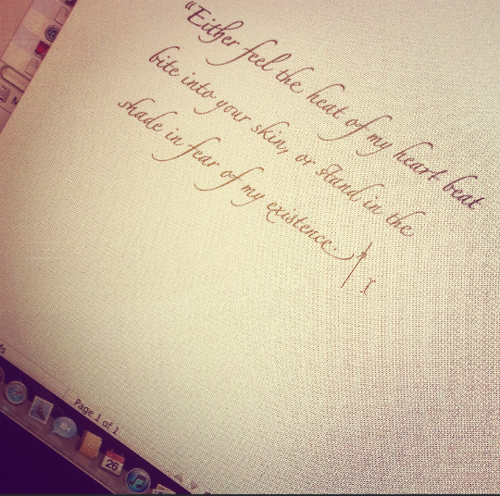 “Either feel the heat of my heart beat
bite into your skin, or stand in the
shade in fear of my existence.
Page 1 of 1
26